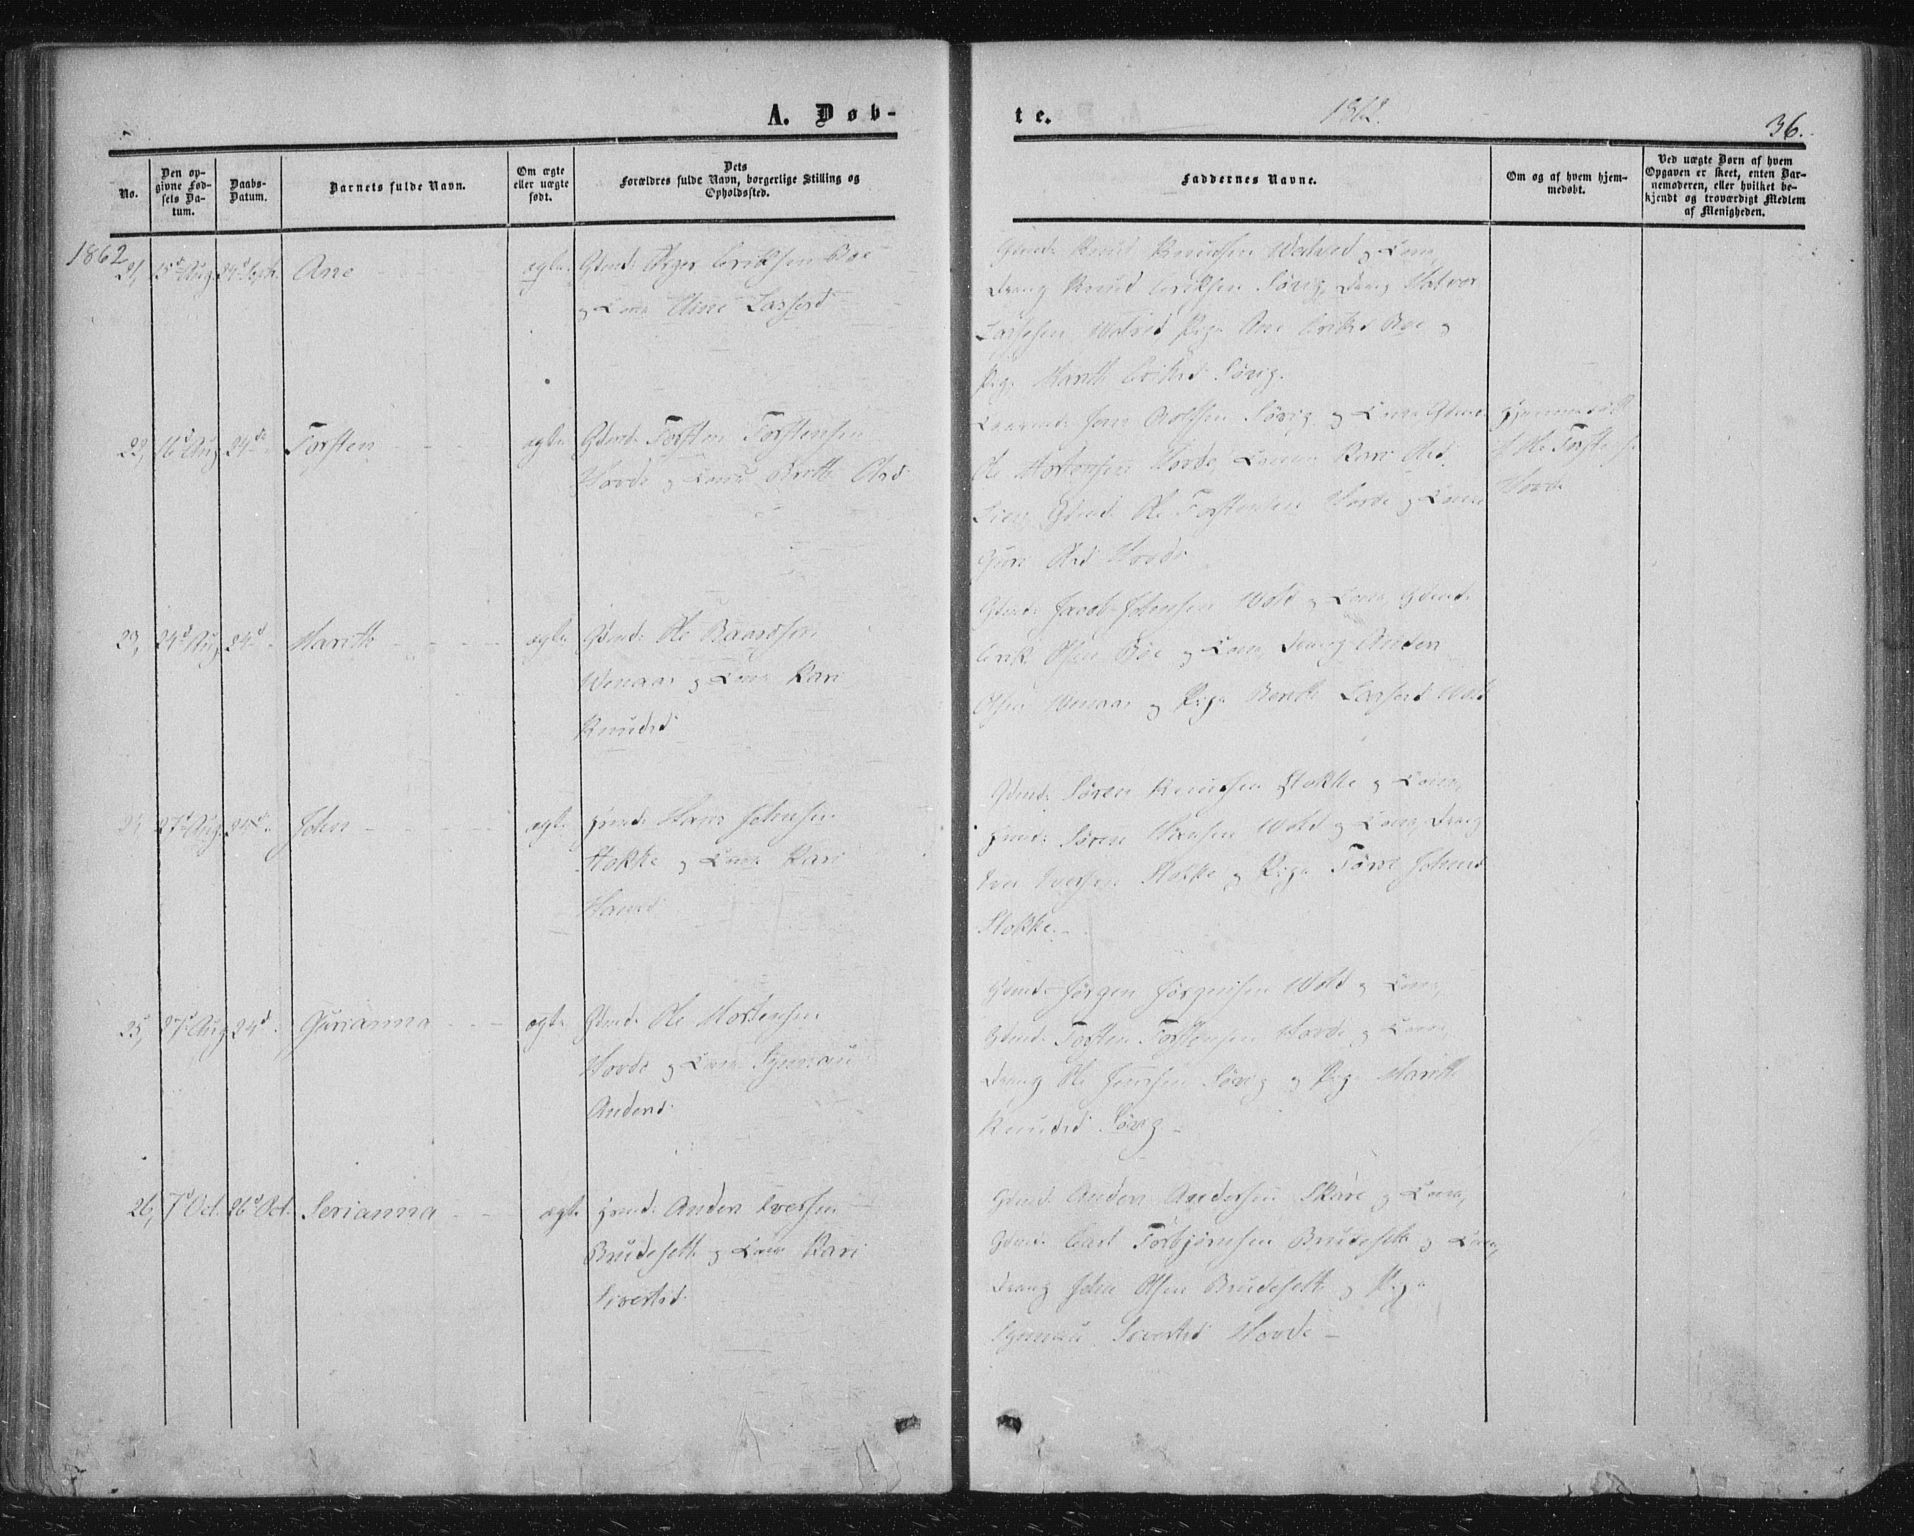 A. Døb-
te.
1862.
36.
No.
Den op-
givne Fød-
sels Da-
tum.
Daabs-
Datum.
Barnets fulde Navn.
Om ægte
eller uægte
født.
Dets
Forældres fulde Navn, borgerlige Stilling og
Opholdssted.
Faddernes Navne.
Om og af hvem hjem-
medøbt.
Ved uægte Børn af hvem
Opgaven er skeet, enten Bar-
nemoderen, eller hvilket be-
kjendt og troværdigt Medlem
af Menigheden.
1862
21, 15d Aug 24d Sept. Ane ægte Gdmd: Eriksen Bøe
og Kone Ane Larsesd
Gdmd: Knud Knudsen og Kone,
Dreng Knud Eriksen Søvig, Dreng Halvor
Larssen Pige Ane Eriksd Bøe og
Pige Marith Eriksd Søvig.
22, 16d Aug 24de Torsten ægte Gdmd: Torsten Torstensen
Hovde og Kone Brette Olsd
Jens Søvig og Kone Gdmd:
Ole Mortensen Hovde, Konen Kari Olsd
Gdmd: Ole Torstensen Hovde og Kone
Guro Olsd Hovde
Hjemmedøbt
af Ole Torstens.
Hovde
23, 24d Aug 24d Marith ægte Gdmd: Ole Baardsen
Wenaas og Kone Kari
Knudsd
Gdmd: Jacob Johnsen Wold og Kone, Gdmd:
Erik Olsen Bøe og Kone, Dreng Anders
Olsen Wenaas og Pige Larsesd Wold
24, 27d Aug 24d John ægte Hans Johnsen
Stokke og Kone Kari
Hansd
Gdmd: Søren Knudsen Stokke og Kone,
Søren Hansen Wold og Kone, Dreng
Iver Iversen Stokke og Pige Johnsd
Stokke.
25, 27d Aug 24d Gurianna ægte Gdmd: Ole Mortensen
Hovde og Kone Synnau
Andersd
Gdmd: Jørgen Jørgensen Wold og Kone,
Gdmd: Torsten Torstensen Hovde og Kone,
Dreng Ole Jensen Søvig og Pige Marith
Knudsd Søvig
26, 7d Oct. 26d Oct. Serianna ægte Anders Iversen
Brudeseth og Kone Kari
Sivertsd
Gdmd: Anders Andersen Skare og Kone,
Gdmd: Carl Torbjørnsen Brudeseth og Kone,
Dreng John Olsen Brudeseth og Pige
Synnau Sivertsd Hovde